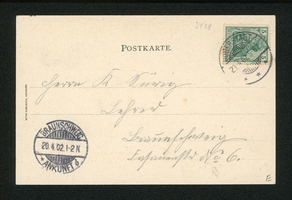 POSTKARTE.
Herrn K. Sürig
Lehrer
Braunschweig
Fasanenstr. No 6.
BRAUNSCHWEIG
20.4.02.1-2N
* ANKUNFT *